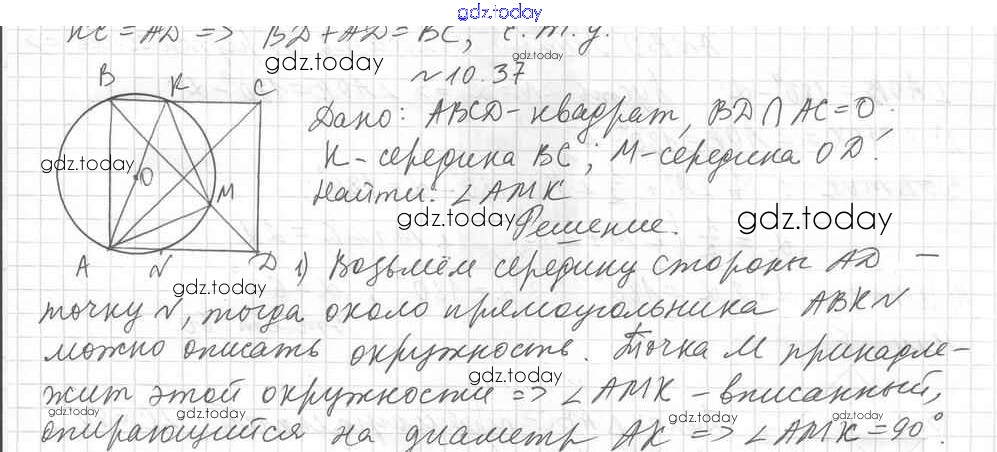 gdz.today
KC = AD => BD + AD = BC, с.т.у.
gdz.today
gdz.today
№10.37
B K C
Дано: ABCD - квадрат, BD ∩ AC = O.
gdz.today
O
K - середина BC; M - середина OD.
M
Найти: ∠AMK
gdz.today
gdz.today
Решение.
A N D
1) Возьмём середину стороны AD -
gdz.today
gdz.today
точку N, тогда около прямоугольника ABKN
можно описать окружность. Точка M принадле-
gdz.today
жит этой окружности => ∠AMK - вписанный,
gdz.today
gdz.today
gdz.today
опирающийся на диаметр AK => ∠AMK = 90°.